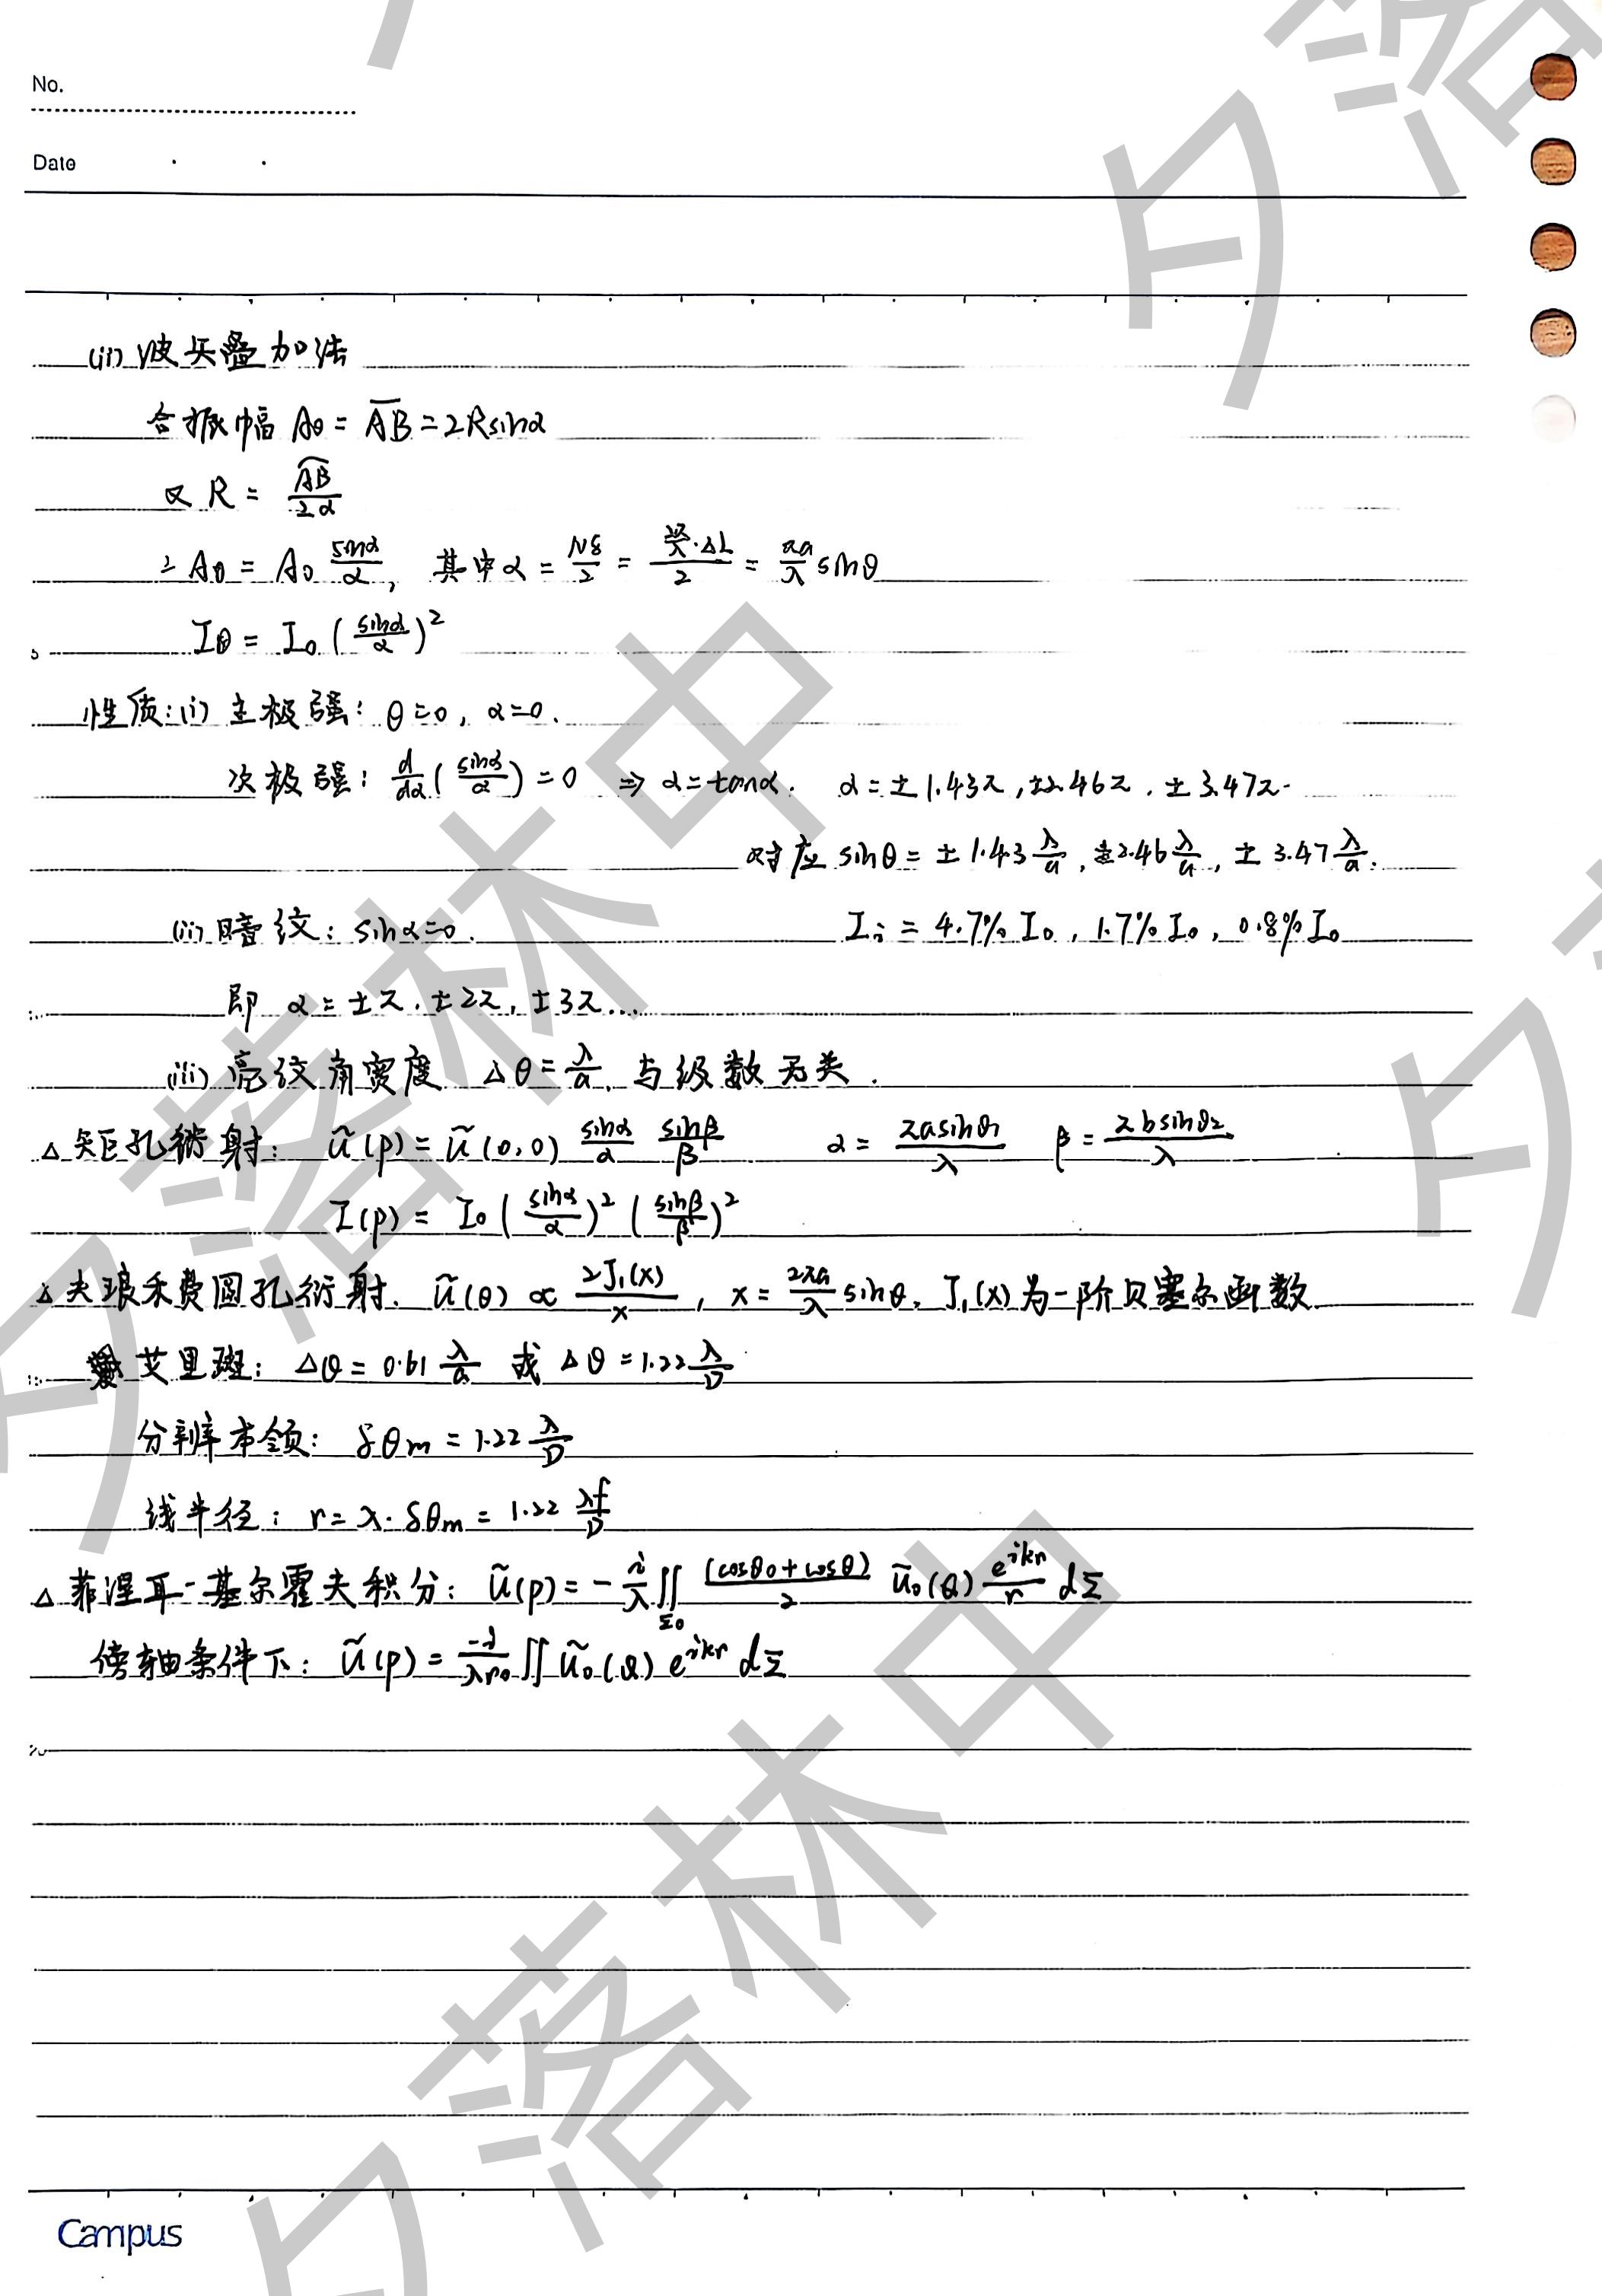 No.
Date
(ii) 波矢叠加法
合振幅 Aθ = A̅B̅ = 2Rsinα
又 R = \frac{\overset{\frown}{AB}}{2α}
∴ Aθ = A₀ \frac{sinα}{α}, 其中 α = \frac{Nδ}{2} = \frac{\frac{2π}{λ}·ΔL}{2} = \frac{πa}{λ} sinθ
5
Iθ = I₀ (\frac{sinα}{α})²
性质: (i) 主极强: θ=0, α=0.
次极强: \frac{d}{dα}(\frac{sinα}{α}) = 0 ⇒ α=tanα. α = ±1.43π, ±2.46π, ±3.47π.
对应 sinθ = ±1.43\frac{λ}{a}, ±2.46\frac{λ}{a}, ±3.47\frac{λ}{a}.
(ii) 暗纹: sinα=0. I_i = 4.7% I₀, 1.7% I₀, 0.8% I₀
即 α = ±π, ±2π, ±3π...
(iii) 亮纹角宽度 Δθ = \frac{λ}{a}, 与级数无关.
△ 矩孔衍射: ũ(p) = ũ(0,0) \frac{sinα}{α} \frac{sinβ}{β} α = \frac{πasinθ₁}{λ} β = \frac{πbsinθ₂}{λ}
I(p) = I₀ (\frac{sinα}{α})² (\frac{sinβ}{β})²
△ 夫琅禾费圆孔衍射. ũ(θ) ∝ \frac{2J₁(x)}{x}, x = \frac{2πa}{λ} sinθ, J₁(x) 为一阶贝塞尔函数
艾里斑: Δθ = 0.61 \frac{λ}{a} 或 Δθ = 1.22 \frac{λ}{D}
分辨本领: δθₘ = 1.22 \frac{λ}{D}
线半径: r = x·δθₘ = 1.22 \frac{λf}{D}
△ 菲涅耳-基尔霍夫积分: ũ(p) = -\frac{i}{λ} ∬_{Σ₀} \frac{(cosθ₀+cosθ)}{2} ũ₀(Q) \frac{e^{ikr}}{r} dΣ
傍轴条件下: ũ(p) = \frac{-i}{λr₀} ∬ ũ₀(Q) e^{ikr} dΣ
Campus
夕落林中
夕落林中
夕落
夕